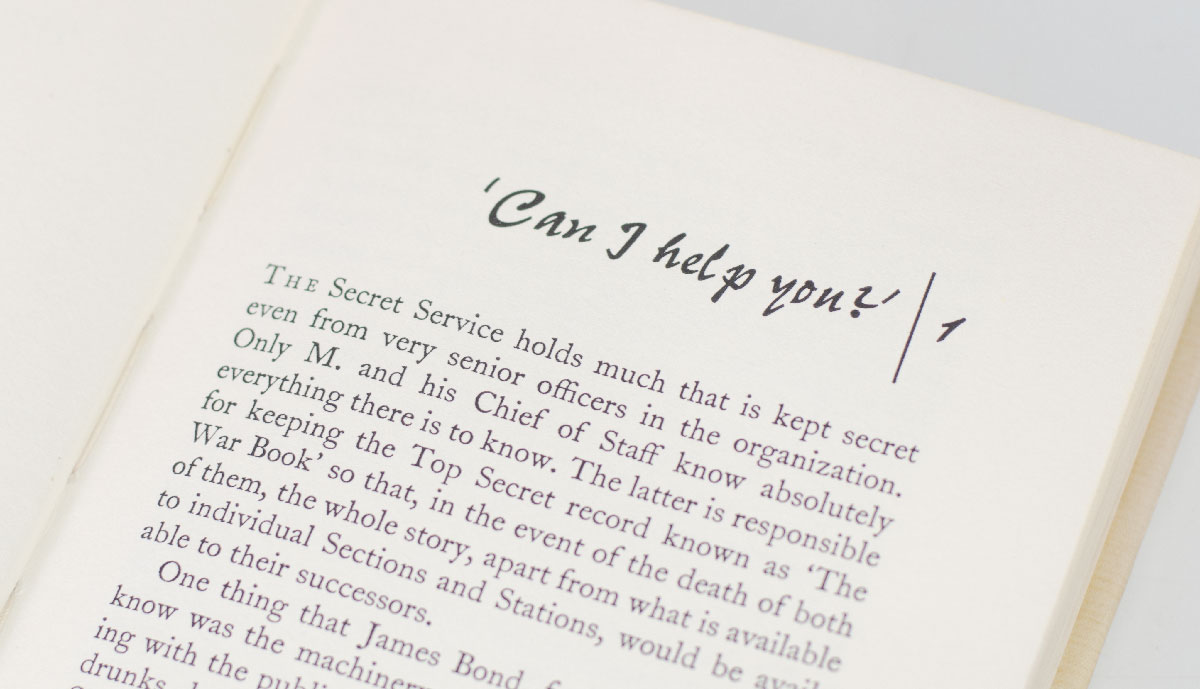 'Can I help you?' | 1
THE Secret Service holds much that is kept secret
even from very senior officers in the organization.
Only M. and his Chief of Staff know absolutely
everything there is to know. The latter is responsible
for keeping the Top Secret record known as 'The
War Book' so that, in the event of the death of both
of them, the whole story, apart from what is available
to individual Sections and Stations, would be avail
able to their successors.
One thing that James Bond
know was the machiner
ing with the publi
drunks